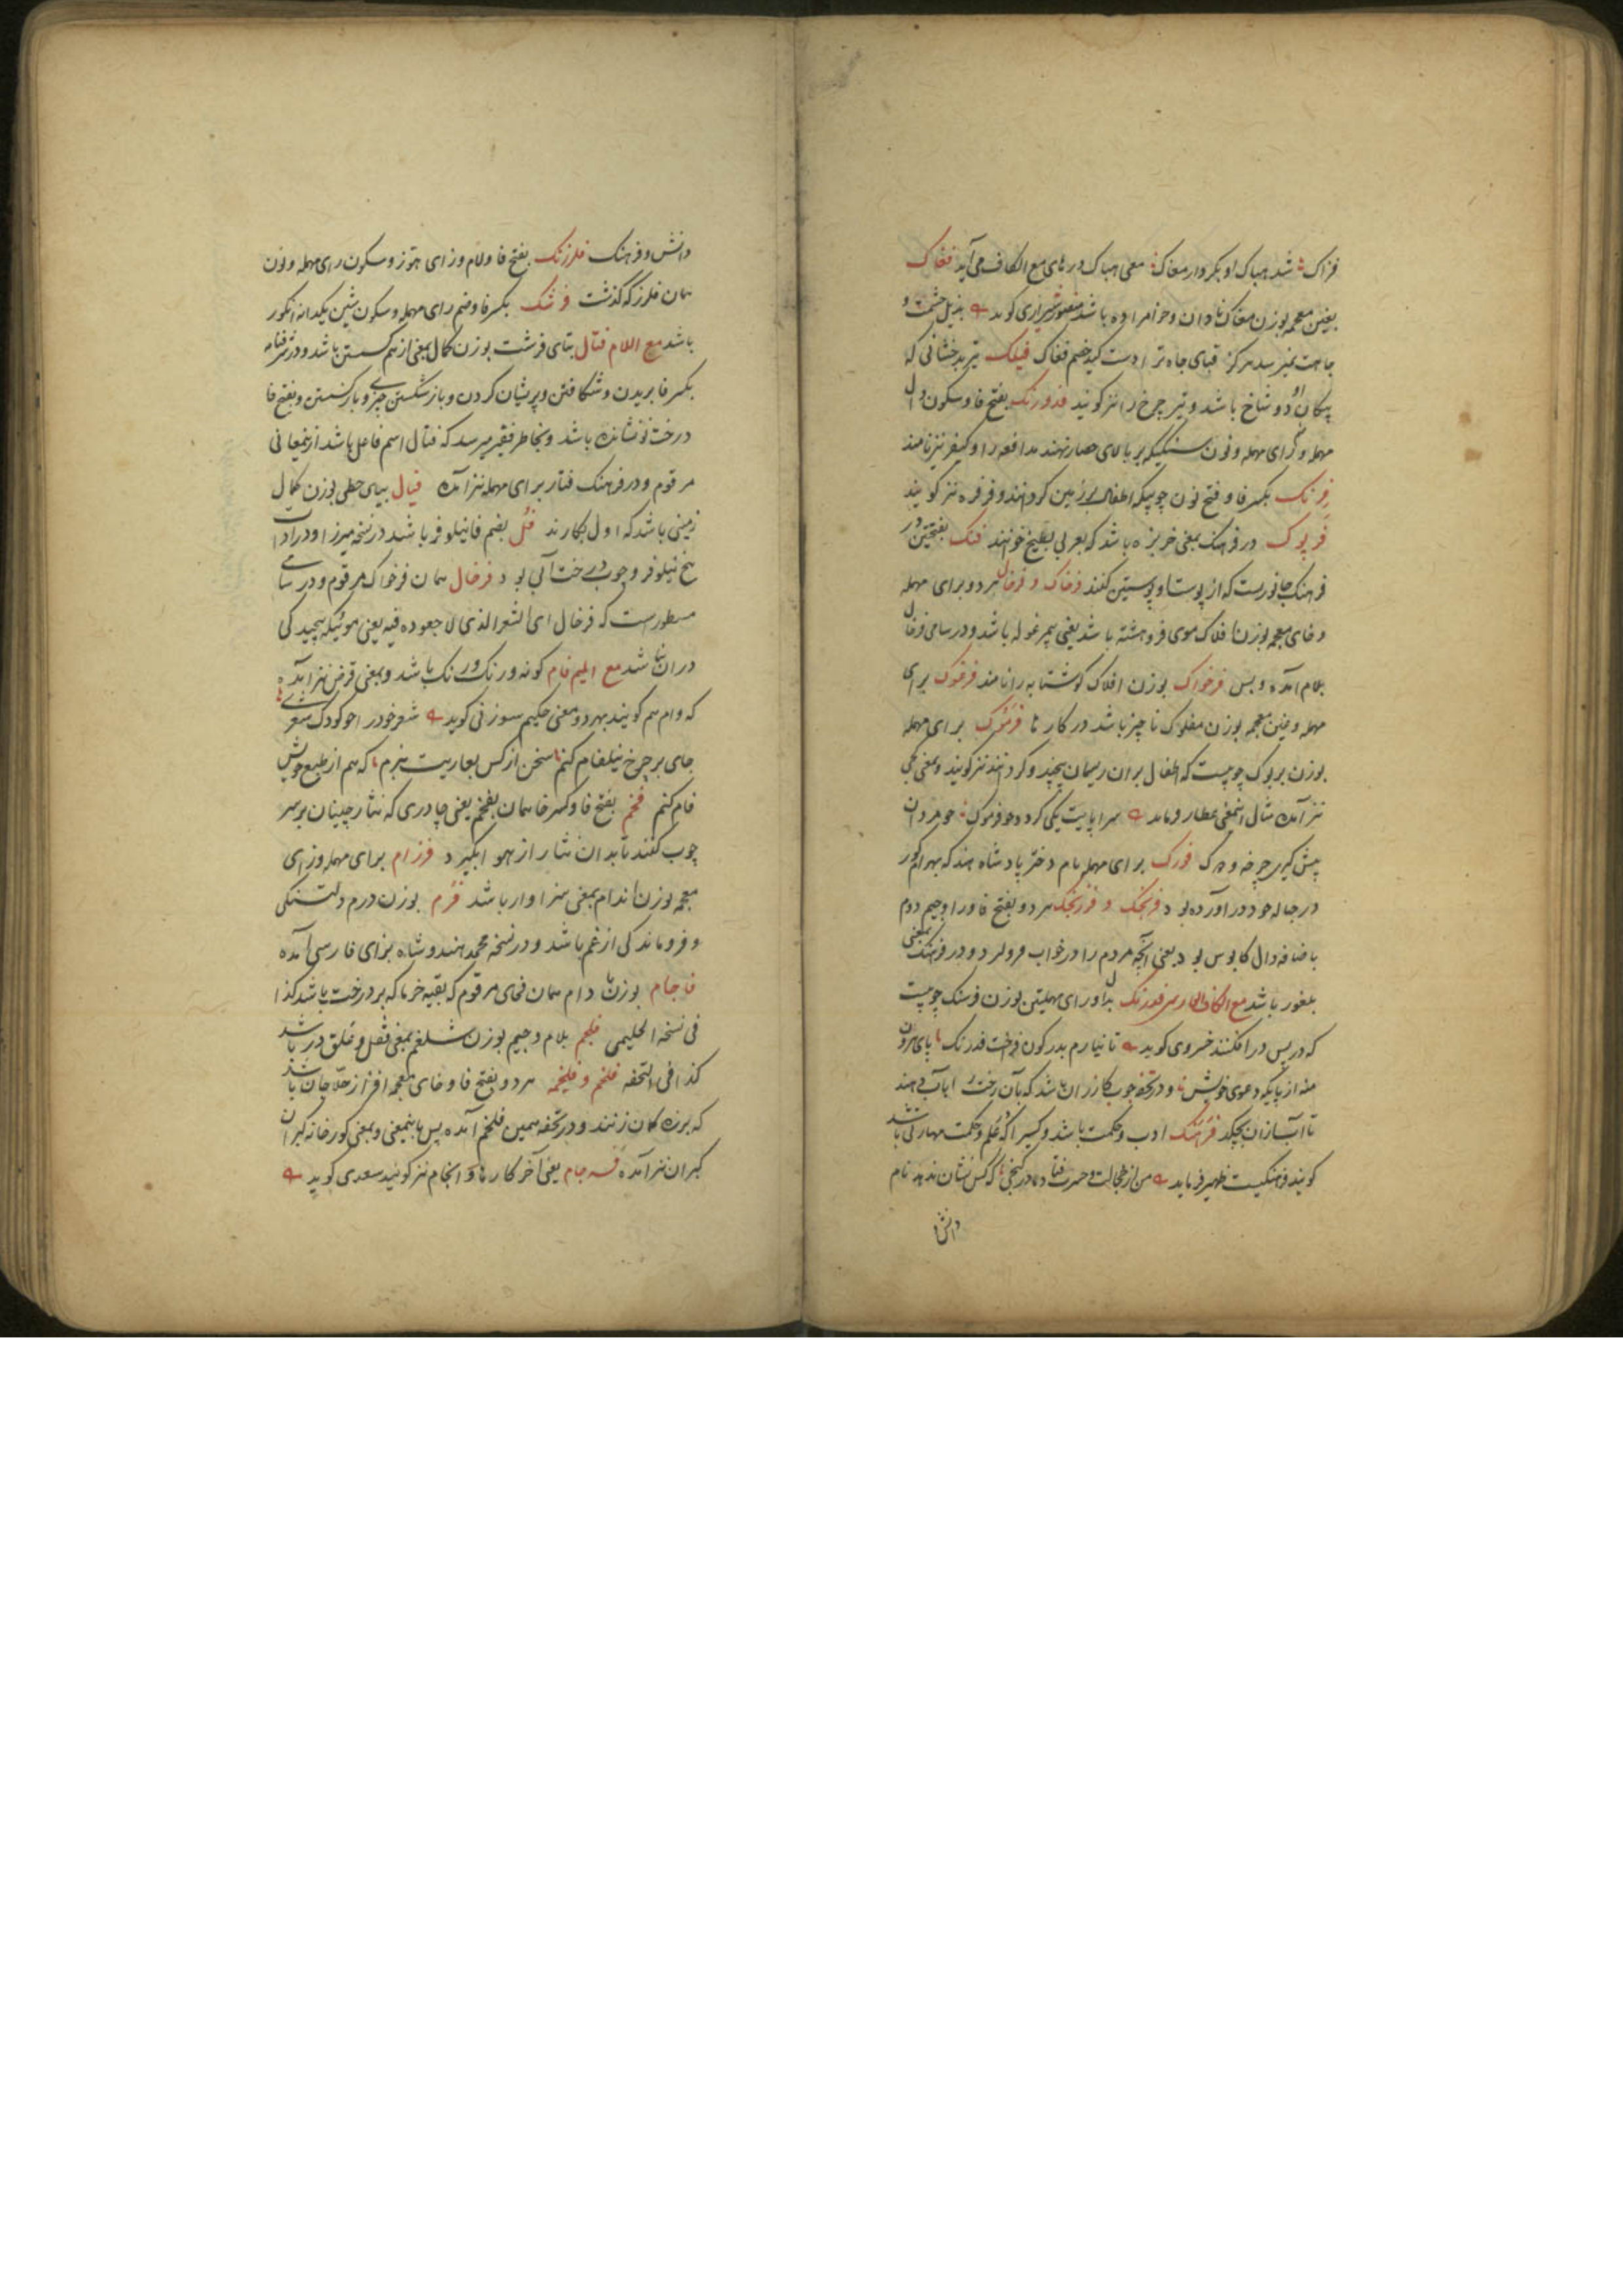 فزاک شد هباک او بکردار مغاک معنی هباک در های مع الکاف می آید فغاک
بغین معجمه بوزن مغاک نادان و حرامزاده باشد منصور شیرازی گوید بذیل حشمت و
جاهت نمیرسد هرگز قبای جاه ترا دست کید خصم فغاک فیلک تیر بدخشانی که
پیکان او دو شاخ باشد و تیر چرخ را نیز گویند فدورنک بفتح فا و سکون دال
مهمله و رای مهمله و نون سنگیکه بر بالای حصار نهند مدافعه را و کیفر نیز نامند
فرنک بکسر فا و فتح نون چوبیکه اطفال بر زمین گردانند و فرفره نیز گویند
فرپوک در فرهنک بمعنی خربزه باشد که بعربی بطیخ خوانند فنک بفتحتین در
فرهنک جانوریست که از پوست او پوستین کنند فرخاک و فرخال هر دو برای مهمله
و خای معجمه بوزن افلاک موی فروهشته باشد یعنی بی مرغوله باشد و در سامی فرخال
بلام آمده و بس فرخواک بوزن افلاک گوشتابه را نامند فرغوک برای
مهمله و غین معجمه بوزن مفلوک ناچیز باشد در کارها فرموک برای مهمله
بوزن بربوک چوبیست که اطفال بران ریسمان پیچند و گردانند نیز گویند و بمعنی کجی
نیز آمده مثال اینمعنی عطار فرماید سراپایت یکی گردد چو فرموک چو مردان
پیش گیری چرخه و دوک فورک برای مهمله نام دختر پادشاه هند که بهرام گور
در حباله خود در آورده بود فرنجک و فرزنجک هر دو بفتح فا و را و جیم دوم
باضافه دال کابوس بود یعنی آنچه مردم را در خواب فرو گیرد و در فرهنک بمعنی
بلغور باشد مع الکاف الفارسی فدرنک بدال و رای مهملتین بوزن فرسنک چوبیست
که در پس در افکنند خسروی گوید تا نیارم بدر کون فراخت فدرنک پای بیرون
منه از پایگه دعوی خویش و در تحفه چوب گازران باشد که بآن رخت را تاب دهند
تا آب از آن بچکد فرهنک ادب و حکمت باشد و کسیرا که علم و حکمت مهارتی باشد
گویند فرهنگیست ظهیر فرماید من از خجالت و حسرت فتاده در کنجی که کس نشان ندهد نام
دانش
دانش و فرهنک فلرزنک بفتح فا و لام و زای هوز و سکون رای مهمله و نون
همان فلرز که گذشت فرشک بکسر فا و ضم رای مهمله و سکون شین یکدانه انگور
باشد مع اللام فتال بتای قرشت بوزن کمال بمعنی از هم گسستن باشد و در شرفنامه
بکسر فا بریدن و شکافتن و پریشان کردن و باز شکستن چیزی و باز گسستن و بفتح فا
درخت نو نشانده باشد و بخاطر فقیر میرسد که فتال اسم فاعل باشد از معانی
مرقوم و در فرهنک فتار برای مهمله نیز آمده فیال بیای حطی بوزن کمال
زمینی باشد که اول بکارند فل بضم فا نیلوفر باشد در نسخه میرزا و در ادات
بیخ نیلوفر و چوب درخت آبی بود فرخال همان فرخواک مرقوم و در سامی
مسطورست که فرخال ای الشعر الذی لا جعوده فیه یعنی موئیکه پیچیدگی
در ان نباشد مع المیم فام گونه و رنک و رنک باشد و بمعنی قرض نیز آمده
که وام هم گویند بهر دو معنی حکیم سوزنی گوید شعر خود را چو کودک شعری
جای بر چرخ نیلفام کنم سخن از کس بعاریت نبرم که هم از طبع خویش
فام کنم فخم بفتح فا و کسر خا همان بفخم یعنی چادری که نثار چینان بر سر
چوب کنند تا بدان نثار از هوا بگیرد فرزام برای مهمله و زای
معجمه بوزن اندام بمعنی سزاوار باشد فرم بوزن درم دلتنگی
و فروماندگی از غم باشد و در نسخه محمد هندوشاه بزای فارسی آمده
فاجام بوزن دام همان فخای مرقوم که بقیه خرما که بر درخت باشد کذا
فی نسخه الحلیمی فلجم بلام و جیم بوزن شلغم بمعنی قفل و غلق در باشد
کذا فی التحفه فلخم و فلخمه هر دو بفتح فا و خای معجمه افزار حلاجان باشد
که بر زه کمان زنند و در تحفه همین فلخم آمده پس باینمعنی و بمعنی گورخانه گبران
گبران نیز آمده فسه جام یعنی آخر کارها و انجام نیز گویند سعدی گوید